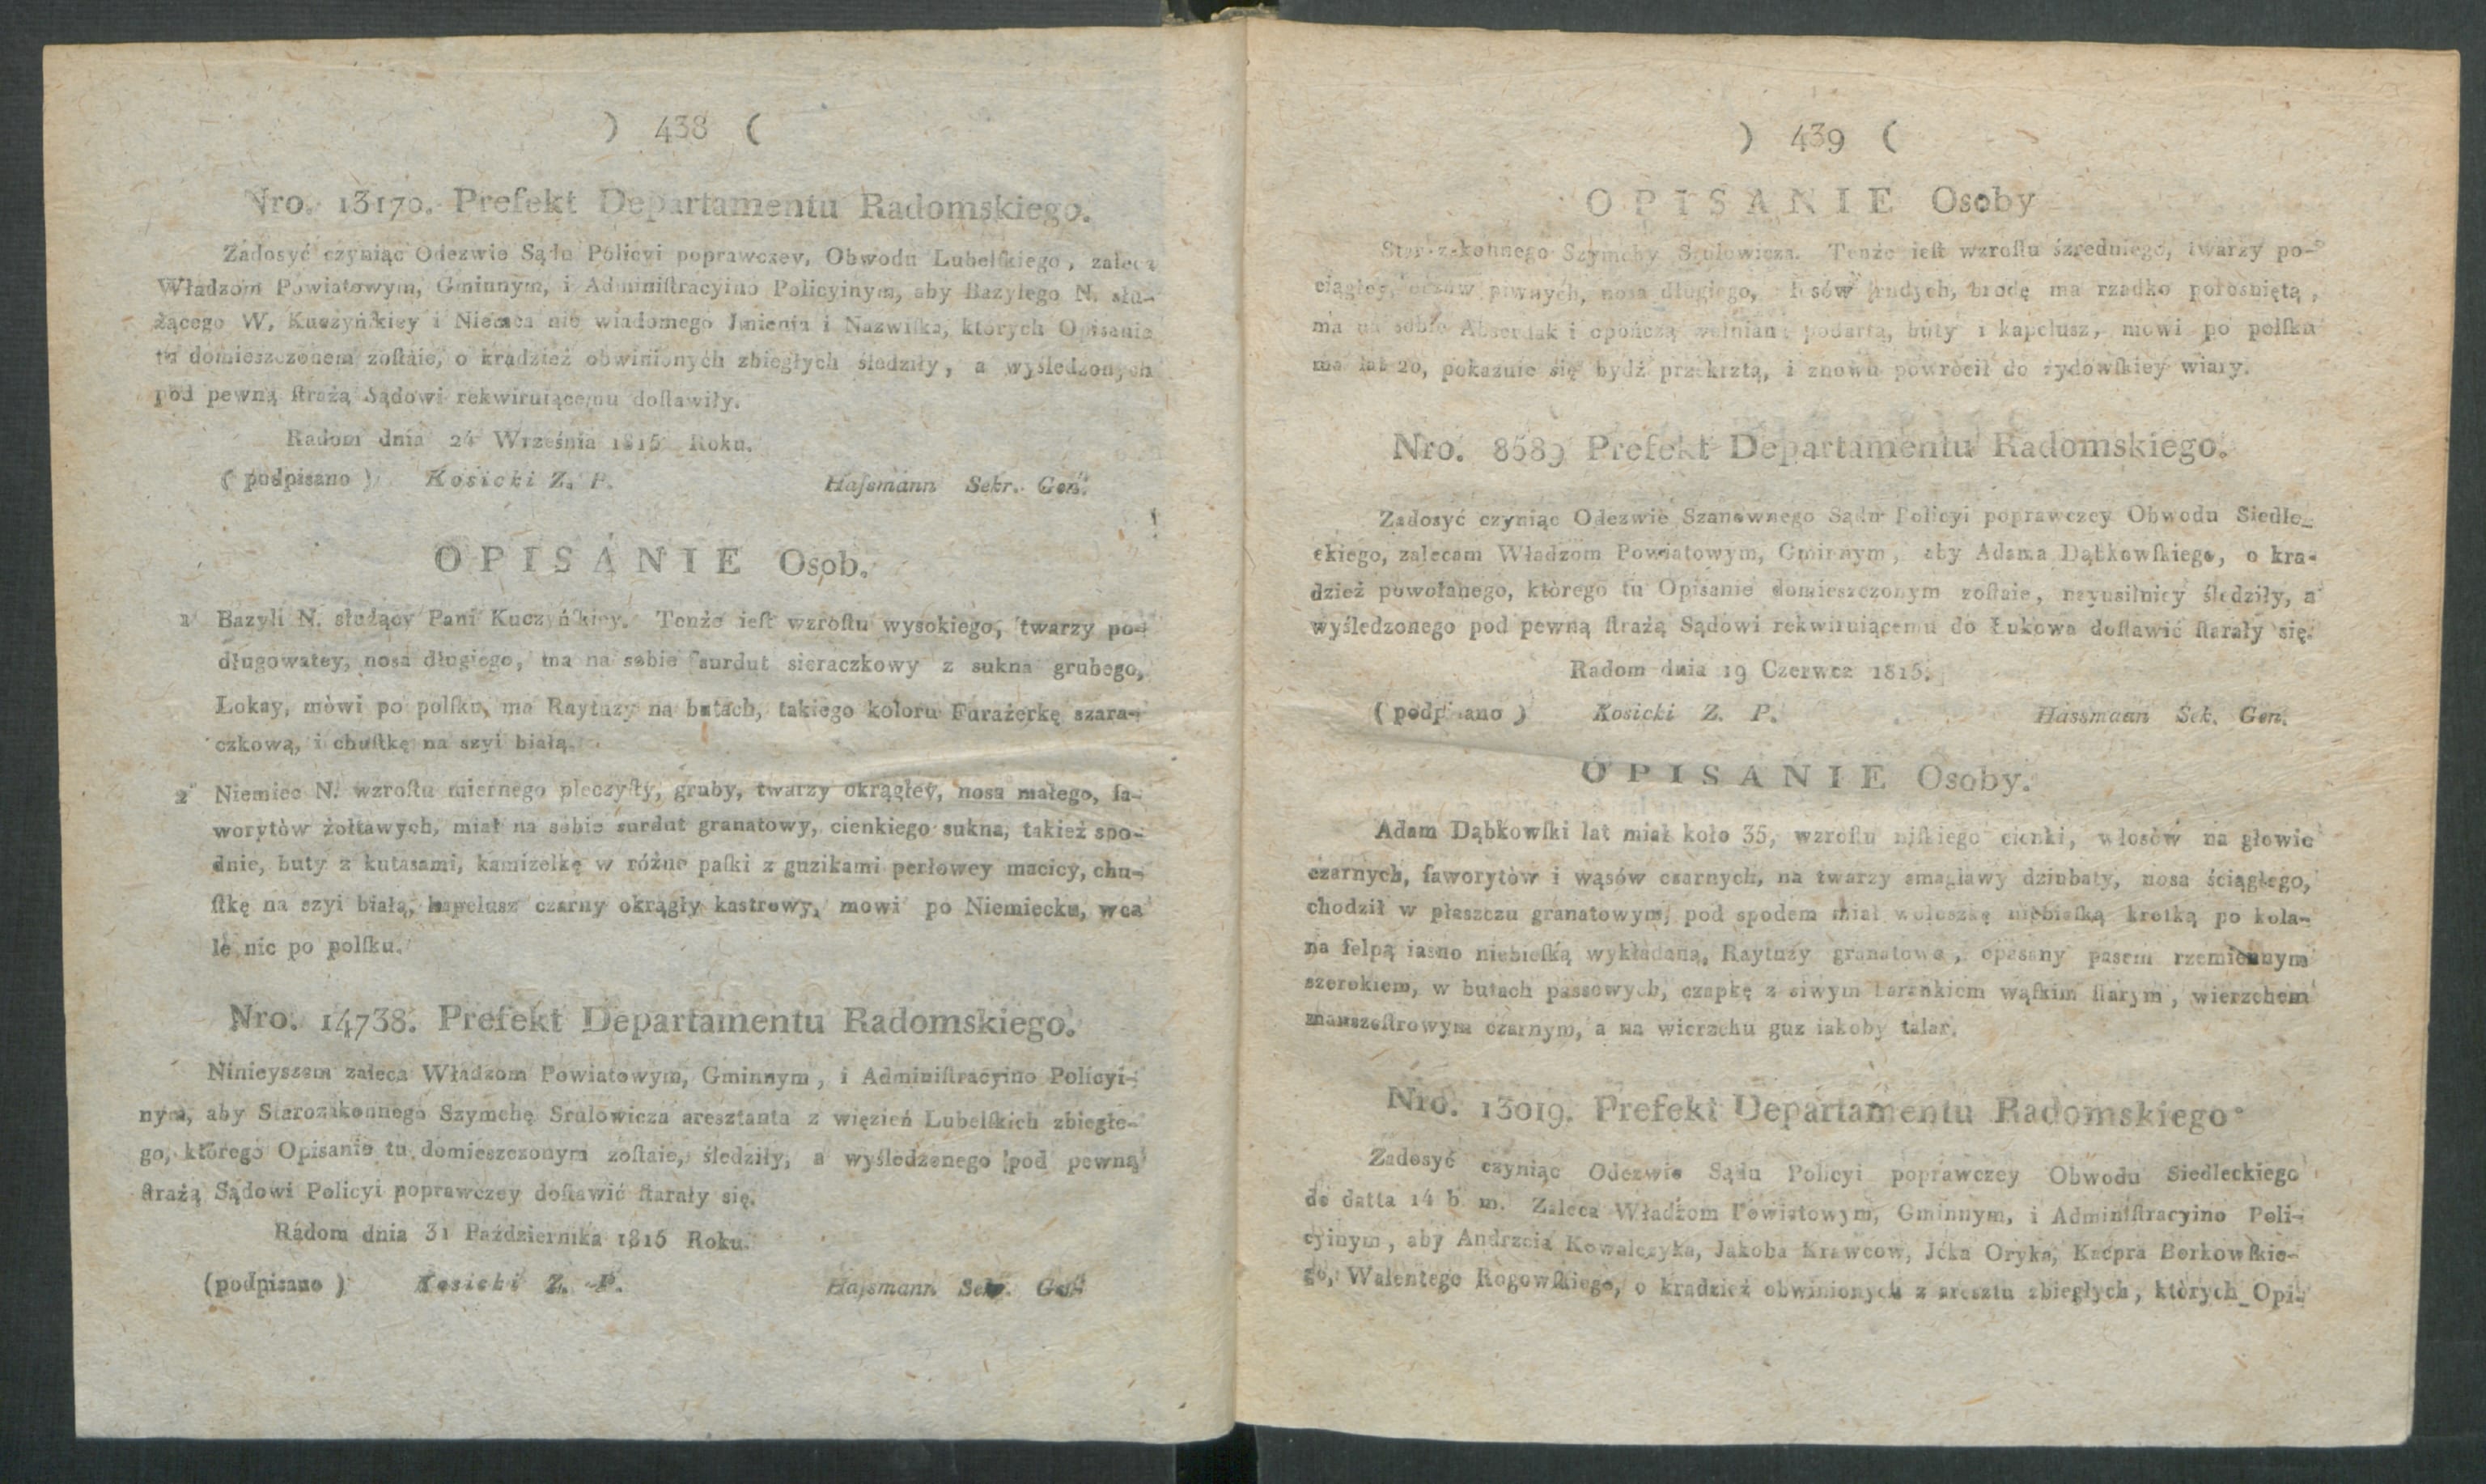 ) 438 (
Nro. 13170. Prefekt Departamentu Radomskiego.
Zadosyć czyniąc Odezwie Sądu Policyi poprawczey, Obwodu Lubelſkiego, zaleca
Władzom Powiatowym, Gminnym, i Adminiſtracyino Policyinym, aby Bazylego N. słu-
żącego W. Kuczyńſkiey i Niemca nie wiadomego Jmienia i Nazwiſka, których Opisanie
tu domieszczonem zoſtaie, o kradzież obwinionych zbiegłych śledziły, a wyśledzonych
pod pewną ſtrażą Sądowi rekwiruiącemu doſtawiły.
Radom dnia 24 Września 1815 Roku.
(podpisano) Kosicki Z. P. Haſsmann Sekr. Gen.
OPISANIE Osob.
1 Bazyli N. służący Pani Kuczyńſkiey. Tenże ieſt wzroſtu wysokiego, twarzy po-
długowatey, nosa długiego, ma na sobie surdut sieraczkowy z sukna grubego,
Łokay, mówi po polſku, ma Raytuzy na butach, takiego koloru Furażerkę szara-
czkową, i chuſtkę na szyi białą.
2 Niemiec N. wzroſtu miernego pleczyſty, gruby, twarzy okrągłey, nosa małego, fa-
worytów żołtawych, miał na sobie surdut granatowy, cienkiego sukna, takież spo-
dnie, buty z kutasami, kamizelkę w różne paſki z guzikami perłowey macicy, chu-
ſtkę na szyi białą, kapelusz czarny okrągły kastrowy, mowi po Niemiecku, wca
le nic po polſku.
Nro. 14738. Prefekt Departamentu Radomskiego.
Ninieyszem zaleca Władzom Powiatowym, Gminnym, i Adminiſtracyino Policyi-
nym, aby Starozakonnego Szymchę Srulowicza aresztanta z więzień Lubelſkich zbiegłe-
go, którego Opisanie tu domieszczonym zoſtaie, śledziły, a wyśledzonego pod pewną
ſtrażą Sądowi Policyi poprawczey doſtawić ſtarały się.
Radom dnia 31 Października 1815 Roku.
(podpisano) Kosicki Z. P. Haſsmann Sekr. Gen.
) 439 (
OPISANIE Osoby
Starozakonnego Szymchy Srulowicza. Tenże ieſt wzroſtu śzredniego, twarzy po-
ciągłey, oczów piwnych, nosa długiego, rudych, brodę ma rzadko porosniętą,
ma na sobie i opończą wełnianą podartą, buty i kapelusz, mowi po polſku
ma lat 20, pokazuie się bydź przekrztą, i znowu powrócił do żydowſkiey wiary.
Nro. 8589 Prefekt Departamentu Radomskiego.
Zadosyć czyniąc Odezwie Szanownego Sądu Policyi poprawczey Obwodu Siedle_
ckiego, zalecam Władzom Powiatowym, Gminnym, aby Adama Dąbkowſkiego, o kra-
dzież powołanego, którego tu Opisanie domieszczonym zoſtaie, nayusilniey śledziły, a
wyśledzonego pod pewną ſtrażą Sądowi rekwiruiącemu do Łukowa doſtawić ſtarały się.
Radom dnia 19 Czerwca 1815.
(podpisano) Kosicki Z. P. Hassmann Sek. Gen.
OPISANIE Osoby.
Adam Dąbkowſki lat miał koło 35, wzroſtu niſkiego cienki, włosów na głowie
czarnych, faworytów i wąsów czarnych, na twarzy smagławy dziubaty, nosa ściągłego,
chodził w płaszczu granatowym, pod spodem miał wołoszkę niebieſką krotką po kola-
na felpą iasno niebieſką wykładaną, Raytuzy granatowe, opasany pasem rzemiennym
szerokiem, w butach passowych, czapkę z siwym barankiem wąſkim ſtarym, wierzchem
manszeſtrowym czarnym, a na wierzchu guz iakoby talar.
Nro. 13019. Prefekt Departamentu Radomskiego.
Zadosyć czyniąc Odezwie Sądu Policyi poprawczey Obwodu Siedleckiego
de datta 14 b. m. Zaleca Władzom Powiatowym, Gminnym, i Adminiſtracyino Poli-
cyinym, aby Andrzeia Kowalczyka, Jakoba Krawcow, Jćka Oryka, Kacpra Borkowſkie-
go, Walentego Rogowſkiego, o kradzież obwinionych z aresztu zbiegłych, których_Opi-